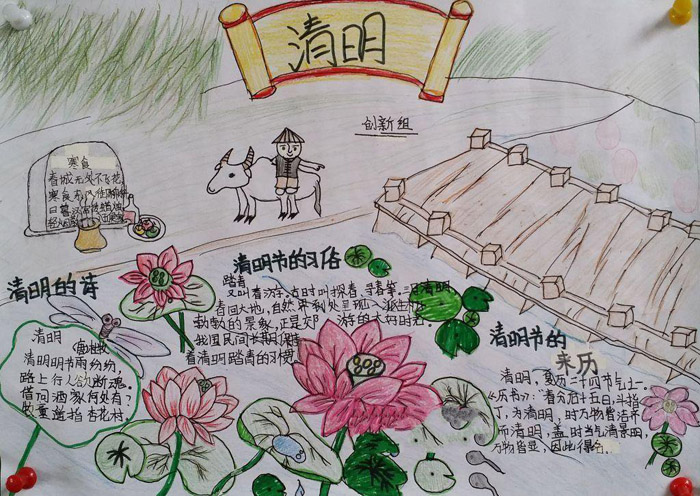 清明
创新组
寒食
春城无处不飞花
寒食东风御柳斜
日暮汉宫传蜡烛
清明的诗
清明
清明时节雨纷纷，
路上行人欲断魂。
借问酒家何处有？
牧童遥指杏花村。
清明节的习俗
踏青
又叫春游。古时叫探春、寻春等。三月清明，
春回大地，自然界到处呈现一派生机
勃勃的景象，正是郊游的大好时光。
我国民间长期保持
着清明踏青的习惯
清明节的
来历
清明，夏历二十四节气之一
历书》：“春分后十五日，斗指
丁，为清明，时万物皆洁齐
而清明，盖时当气清景明，
万物皆显，因此得名。